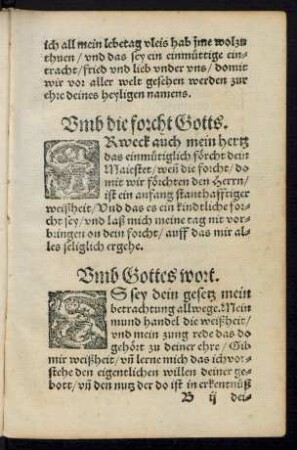 ich all mein lebetag vleis hab jme wolzu
thuen / vnd das sey ein einmüttige ein-
tracht / fried vnd lieb vnder vns / domit
wir vor aller welt gesehen werden zur
ehre deines heyligen namens.
Vmb die forcht Gotts.
ERweck auch mein hertz
das einmütiglich förcht dein
Maiestet / weñ die forcht / do
mit wir förchten den Herrn /
ist ein anfang stanthafftiger
weißheit / Vnd das es ein kindtliche for-
cht sey / vnd laß mich meine tag mit vor-
bringen on dein forcht / auff das mir al-
les seliglich ergehe.
Vmb Gottes wort.
ES sey dein gesetz mein
betrachtung allwege. Mein
mund handel die weißheit /
vnd mein zung rede das do
gehört zu deiner ehre / Gib
mir weißheit / vñ lerne mich das ich vor-
stehe den eigentlichen willen deiner ge-
bott / vñ den nutz der do ist in erkentnüß
B ij dei-